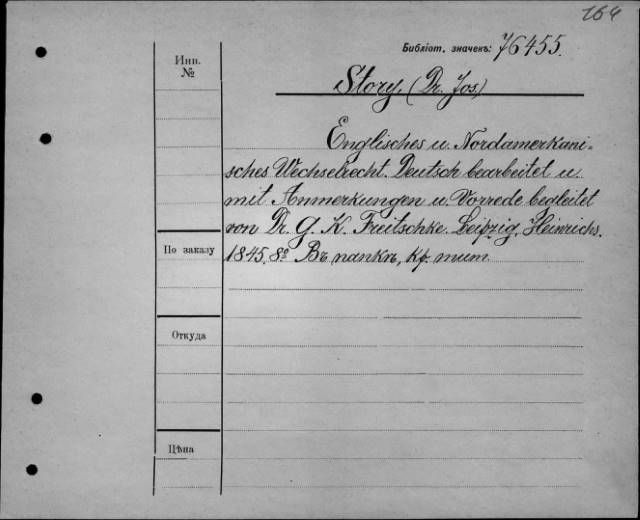 164
Библіот. значекъ: 76455.
Инв.
№
Story, (Dr. Jos.)
Englisches u. Nordamerkani-
sches Wechselrecht. Deutsch bearbeitet u.
mit Anmerkungen u. Vorrede begleitet
von Dr. G. K. Treitschke. Leipzig, Heinrichs.
1845. 8º Въ папкѣ, кр. тит.
По заказу
Откуда
Цѣна